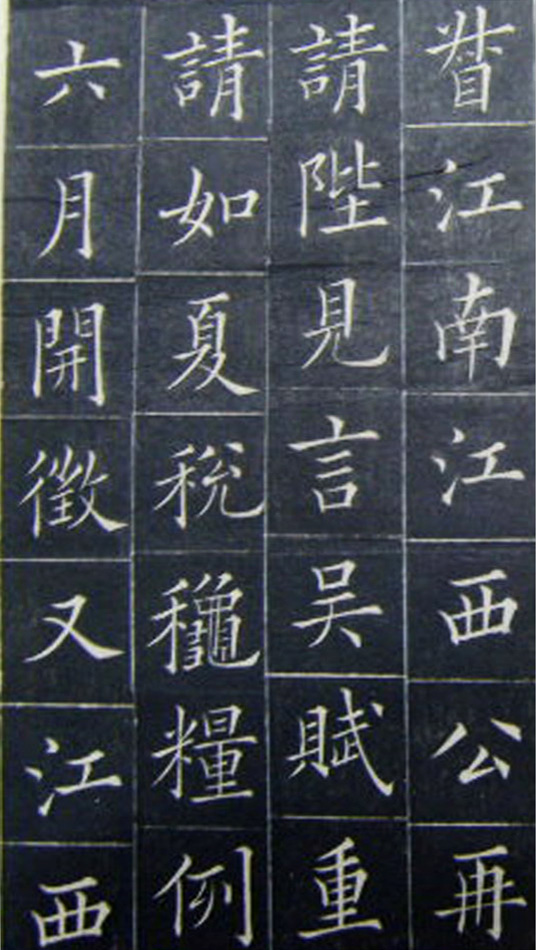 督江南江西公再
請陛見言吴賦重
請如夏稅龝糧例
六月開徵又江西